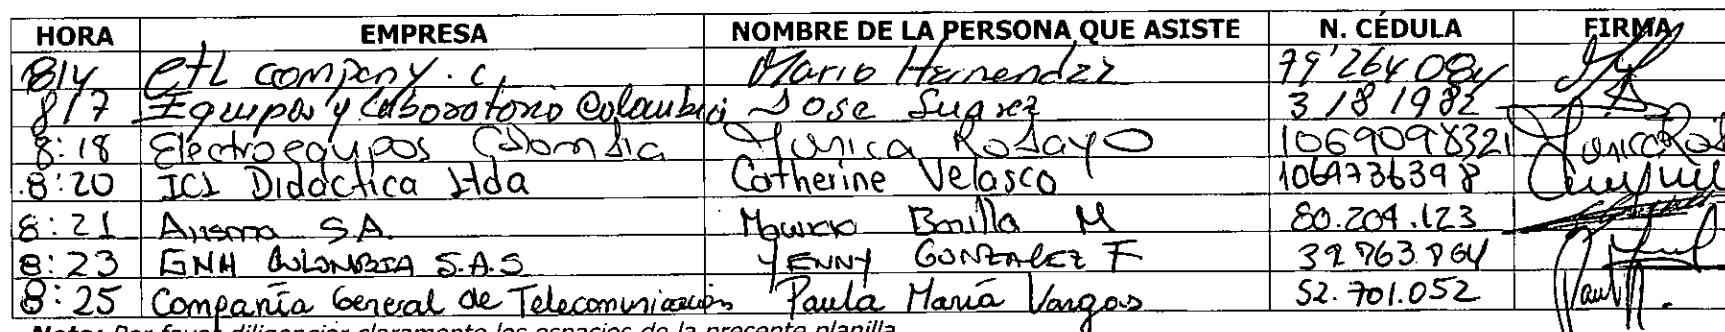 HORA EMPRESA NOMBRE DE LA PERSONA QUE ASISTE N. CÉDULA FIRMA
8/4 CTL company. c. Mario Hernendez 79'264084
8/7 Equipos y Laboratorio Colombia Jose Suarez 3181982
8:18 Electroequipos Colombia Yunica Rodayo 1069098321
8:20 ICL Didactica Ltda Catherine Velasco 1069736398
8:21 Anisma S.A. Mauricio Bonilla M 80.209.123
8:23 GNH COLOMBIA S.A.S YENNY GONZALEZ F 39.763.864
8:25 Compañía General de Telecomunicación Paula María Vargas 52.701.052
Nota: Por favor diligenciar claramente los espacios de la presente planilla